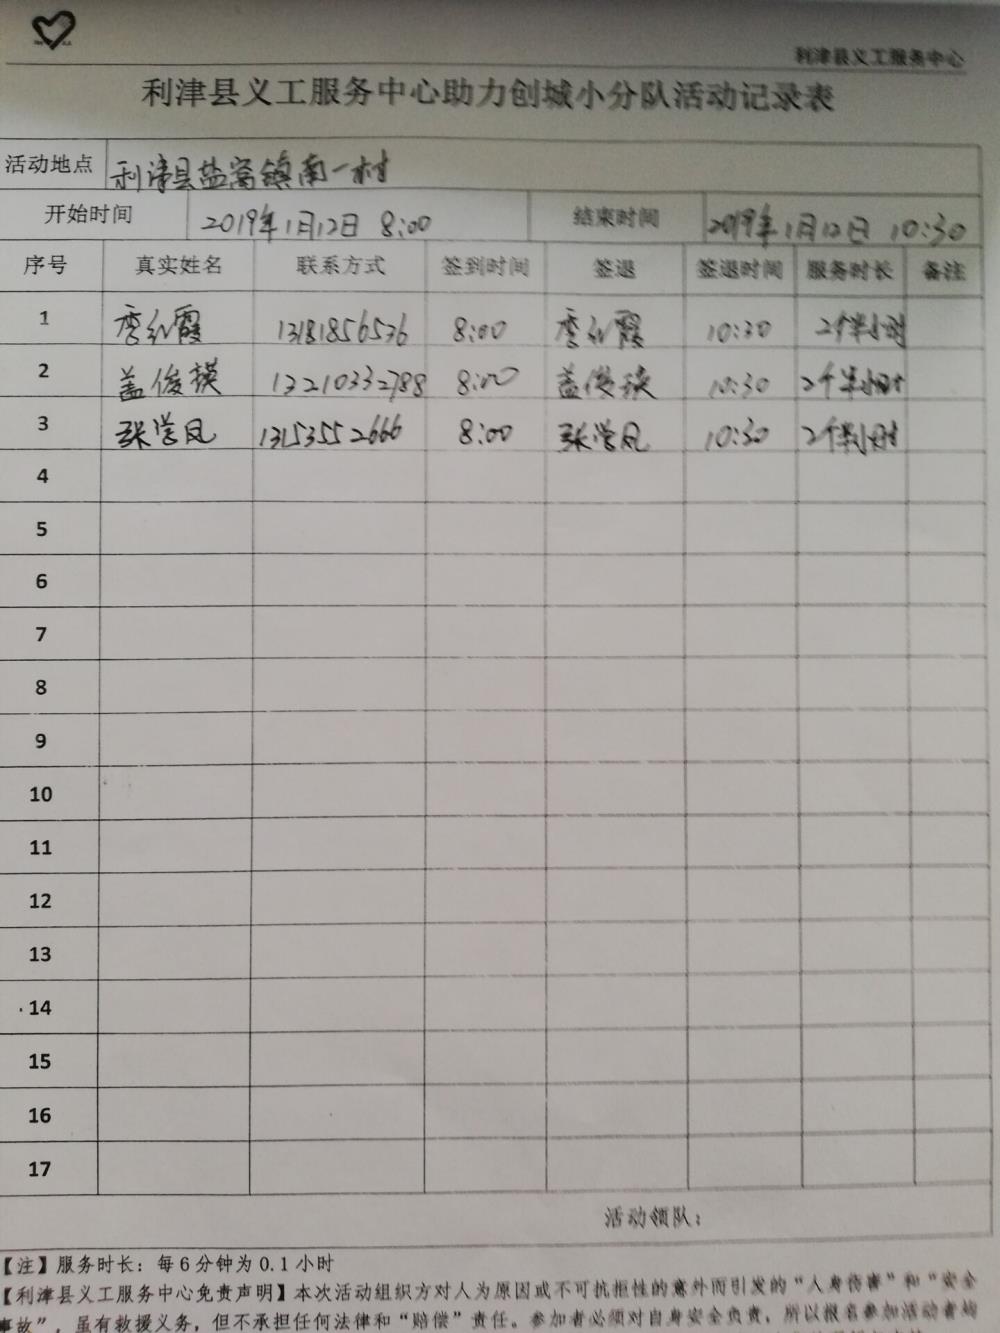 利津县义工服务中心
利津县义工服务中心助力创城小分队活动记录表
活动地点 利津县盐窝镇南一村
开始时间 2019年1月12日 8:00 结束时间 2019年1月12日 10:30
序号 真实姓名 联系方式 签到时间 签退 签退时间 服务时长 备注
1 李红霞 13181856536 8:00 李红霞 10:30 2个半小时
2 盖俊瑛 13210332788 8:00 盖俊瑛 10:30 2个半小时
3 张学凤 13153552666 8:00 张学凤 10:30 2个半小时
4
5
6
7
8
9
10
11
12
13
14
15
16
17
活动领队：
【注】服务时长：每6分钟为0.1小时
【利津县义工服务中心免责声明】本次活动组织方对人为原因或不可抗拒性的意外而引发的“人身伤害”和“安全
事故”，虽有救援义务，但不承担任何法律和“赔偿”责任。参加者必须对自身安全负责，所以报名参加活动者均